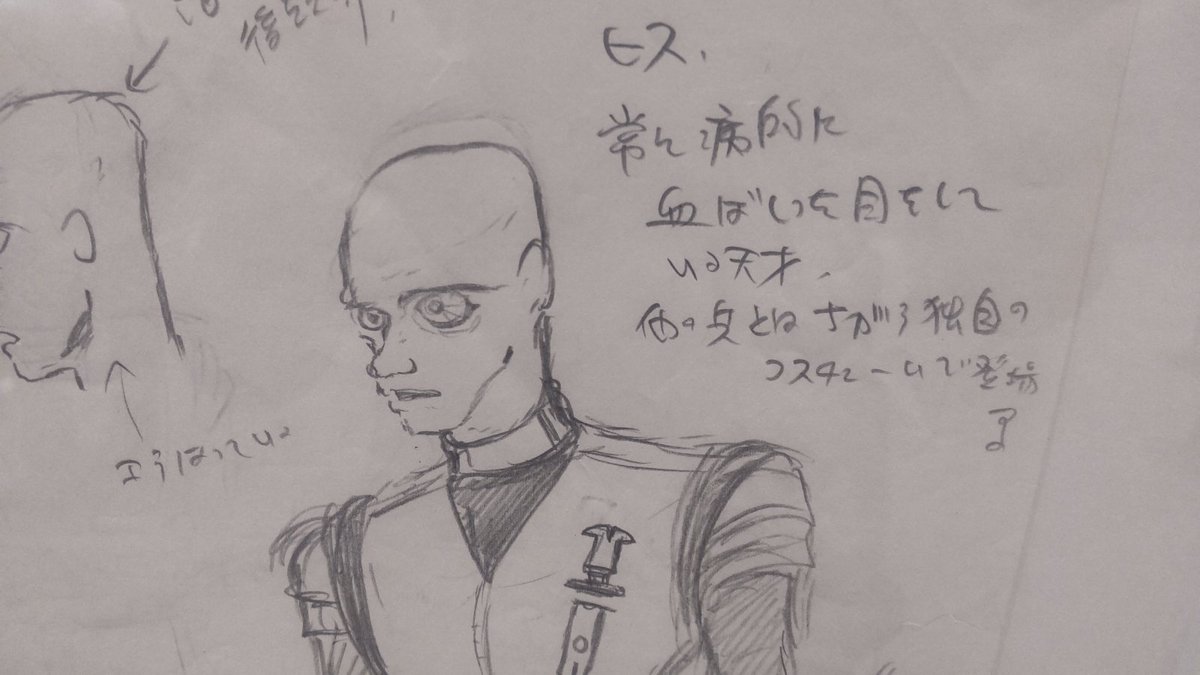 後
ヒス.
常に病的に
血ばしった目をして
いる天才.
他の兵とはちがう独自の
コスチュームで登場
する
エラはっている